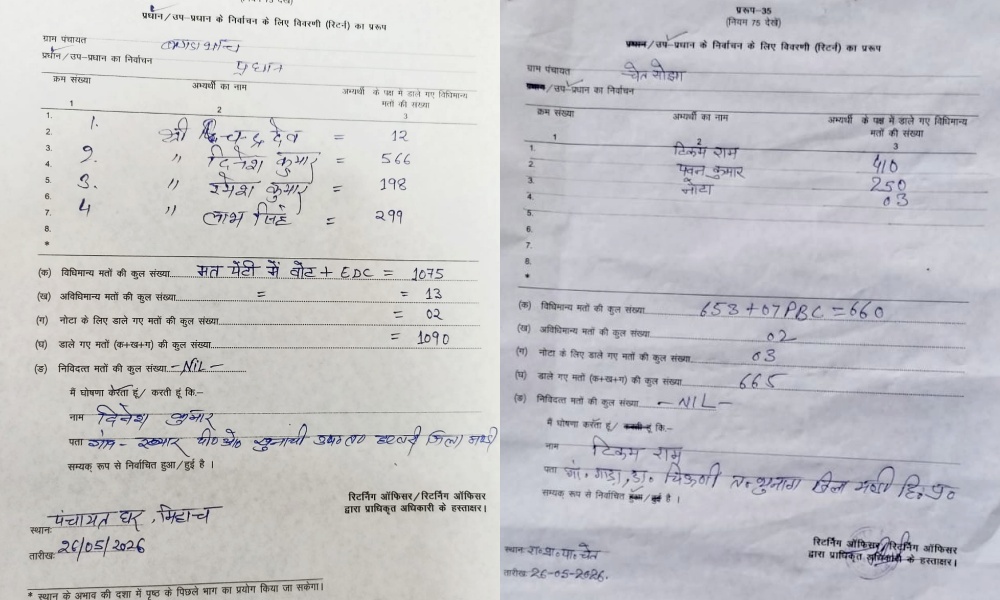 (नियम 75 देखें)
प्रधान/उप-प्रधान के निर्वाचन के लिए विवरणी (रिटर्न) का प्ररूप
ग्राम पंचायत
प्रधान/उप-प्रधान का निर्वाचन प्रधान
क्रम संख्या अभ्यर्थी का नाम अभ्यर्थी के पक्ष में डाले गए विधिमान्य मतों की संख्या
1 2 3
1.
2.
3.
4.
5.
6.
7.
8.
*
1. श्री देव = 12
2. " दिनेश कुमार = 566
3. " रमेश कुमार = 198
4 " लाभ सिंह = 299
(क) विधिमान्य मतों की कुल संख्या मत पेटी में वोट + EDC = 1075
(ख) अविधिमान्य मतों की कुल संख्या = = 13
(ग) नोटा के लिए डाले गए मतों की कुल संख्या = 02
(घ) डाले गए मतों (क+ख+ग) की कुल संख्या = 1090
(ङ) निविदत्त मतों की कुल संख्या - NIL -
मैं घोषणा करता हूं/ करती हूं कि.-
नाम दिनेश कुमार
पता जिला
सम्यक् रूप से निर्वाचित हुआ/हुई है ।
रिटर्निंग ऑफिसर/रिटर्निंग ऑफिसर
द्वारा प्राधिकृत अधिकारी के हस्ताक्षर।
स्थान: पंचायत घर,
तारीख: 26/05/2026
* स्थान के अभाव की दशा में पृष्ठ के पिछले भाग का प्रयोग किया जा सकेगा।
प्ररूप-35
(नियम 75 देखें)
प्रधान/उप-प्रधान के निर्वाचन के लिए विवरणी (रिटर्न) का प्ररूप
ग्राम पंचायत
प्रधान/उप-प्रधान का निर्वाचन
क्रम संख्या अभ्यर्थी का नाम अभ्यर्थी के पक्ष में डाले गए विधिमान्य मतों की संख्या
1 2 3
1. टिकम राम 410
2. पवन कुमार 250
3. नोटा 03
4.
5.
6.
7.
8.
*
(क) विधिमान्य मतों की कुल संख्या 653+07 PBC = 660
(ख) अविधिमान्य मतों की कुल संख्या 02
(ग) नोटा के लिए डाले गए मतों की कुल संख्या 03
(घ) डाले गए मतों (क+ख+ग) की कुल संख्या 665
(ङ) निविदत्त मतों की कुल संख्या - NIL -
मैं घोषणा करता हूं/ करती हूं कि.-
नाम टिकम राम
पता
सम्यक् रूप से निर्वाचित हुआ/हुई है ।
रिटर्निंग ऑफिसर/रिटर्निंग ऑफिसर
द्वारा प्राधिकृत अधिकारी के हस्ताक्षर।
स्थान:
तारीख: 26-05-2026.